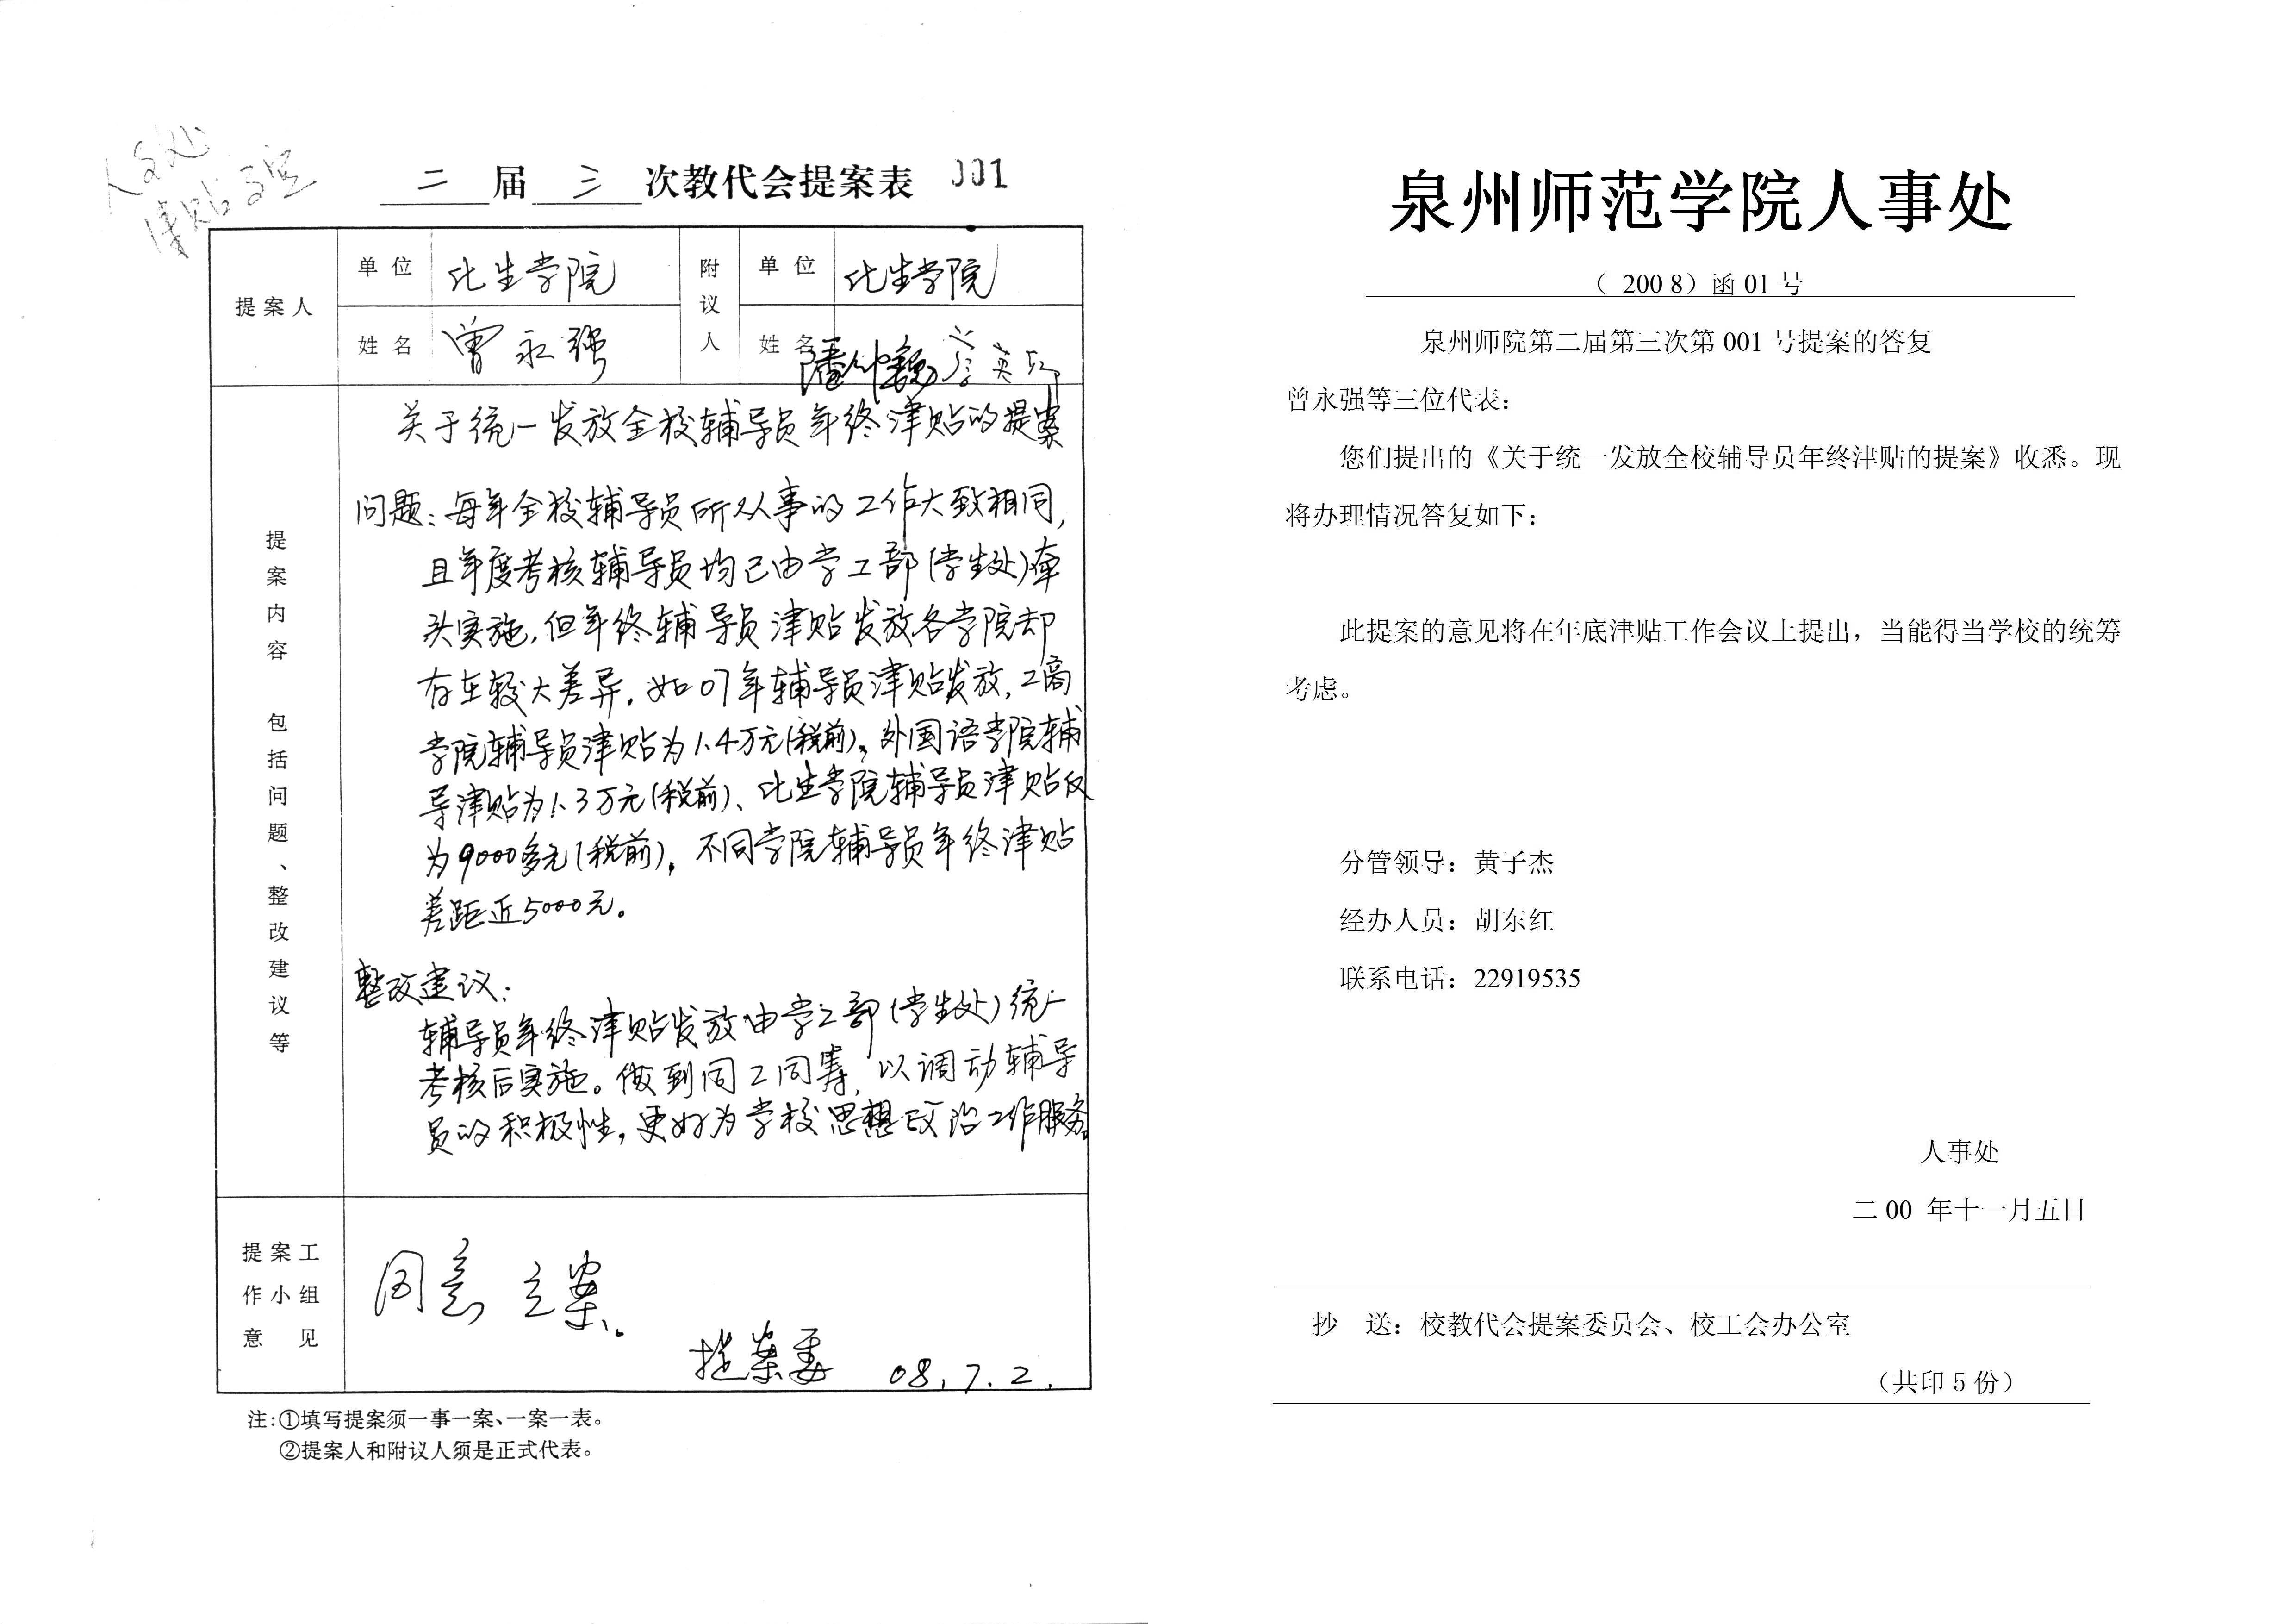 人事处
二届三次教代会提案表 001
提案人
单位
化生学院
附议人
单位
化生学院
姓名
曾永强
姓名
提案内容 包括问题、整改建议等
关于统一发放全校辅导员年终津贴的提案
问题：每年全校辅导员所从事的工作大致相同，
且年度考核辅导员均已由学工部(学生处)牵
头实施，但年终辅导员津贴发放各学院却
存在较大差异。如07年辅导员津贴发放，工商
学院辅导员津贴为1.4万元(税前)、外国语学院辅
导津贴为1.3万元(税前)、化生学院辅导员津贴仅
为9000多元(税前)。不同学院辅导员年终津贴
差距近5000元。
整改建议：
辅导员年终津贴发放由学工部(学生处)统一
考核后实施。做到同工同筹，以调动辅导
员的积极性，更好为学校思想政治工作服务。
提案工
作小组
意 见
同意立案。
提案委 08.7.2.
注：①填写提案须一事一案、一案一表。
②提案人和附议人须是正式代表。
泉州师范学院人事处
（ 200 8）函 01 号
泉州师院第二届第三次第 001 号提案的答复
曾永强等三位代表：
您们提出的《关于统一发放全校辅导员年终津贴的提案》收悉。现
将办理情况答复如下：
此提案的意见将在年底津贴工作会议上提出，当能得当学校的统筹
考虑。
分管领导：黄子杰
经办人员：胡东红
联系电话：22919535
人事处
二 00 年十一月五日
抄 送：校教代会提案委员会、校工会办公室
（共印 5 份）